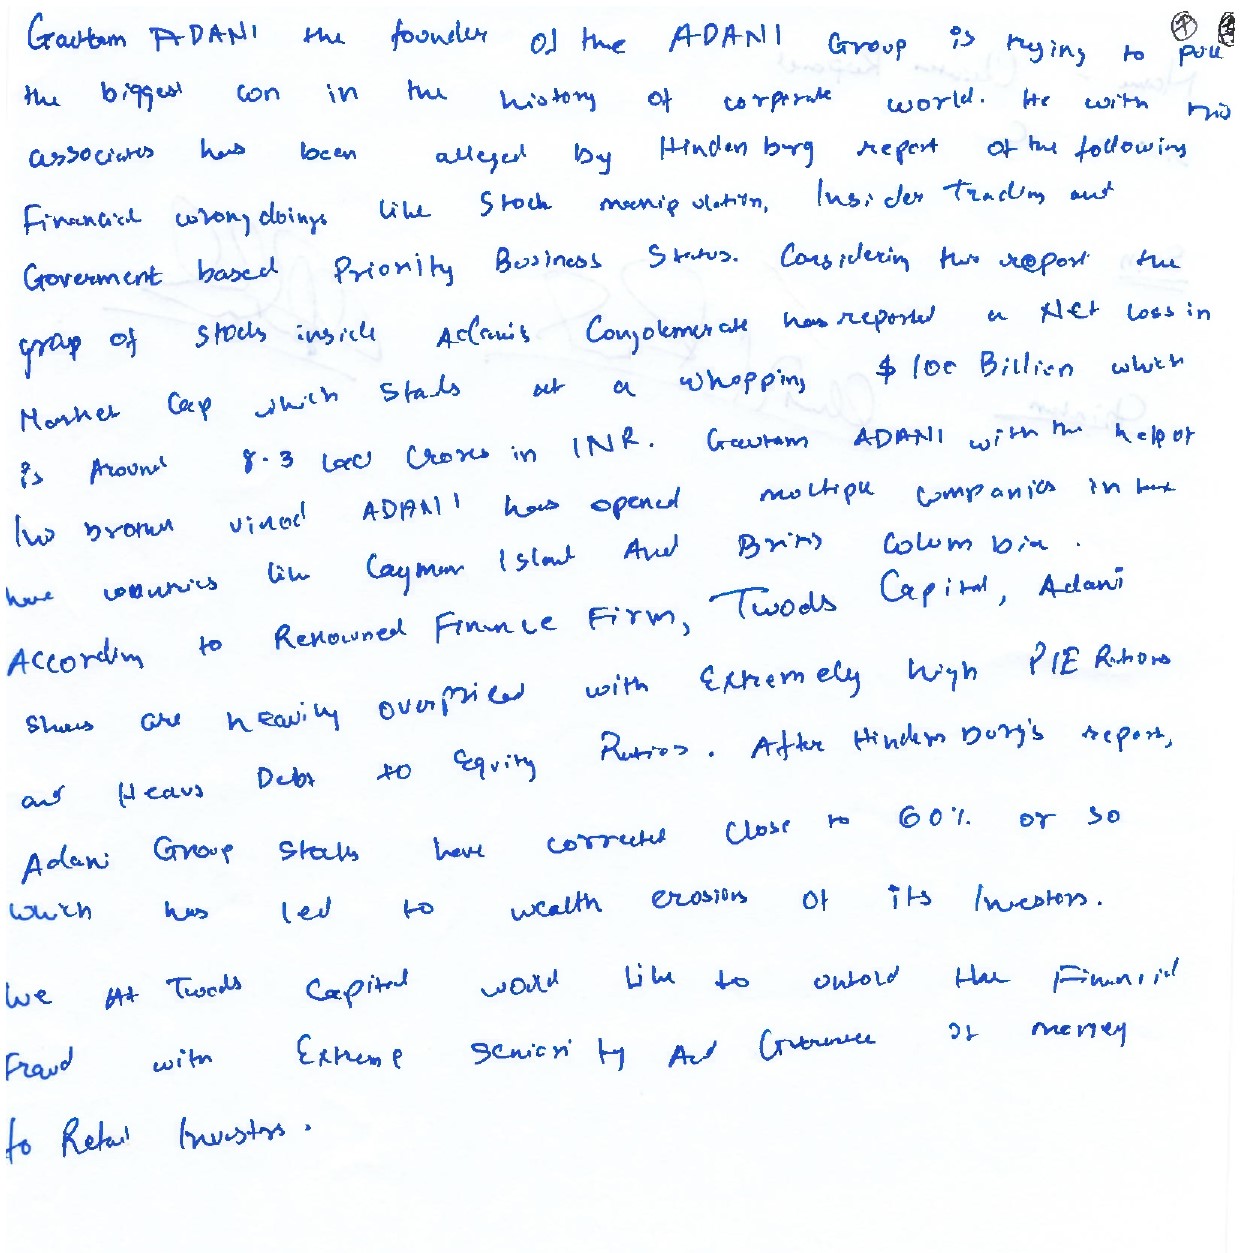 Gautam ADANI the founder of the ADANI Group is trying to pull
the biggest con in the history of corporate world. He with his
associates has been alleged by Hindenburg report of the following
Financial wrongdoings like Stock manipulation, Insider Trading and
Goverment based Priority Business Status. Considering this report the
group of stocks inside Adani's Conglomerate has reported a Net loss in
Market Cap which stands at a whopping $ 100 Billion which
is Around 8.3 Lac Crores in INR. Gautam ADANI with the help of
his brother vinod ADANI has opened multiple companies in tax
have countries like Cayman Island And British Columbia.
According to Renowned Finance Firm, Twods Capital, Adani
Shares are heavily overpriced with Extremely high P/E Ratios
and Heavy Debt to Equity Ratios. After Hindenburg's report,
Adani Group Stocks have corrected close to 60% or so
which has led to wealth erosion of its Investors.
We At Twods Capital would like to unfold the Financial
Fraud with Extreme And of money
to Retail Investors.